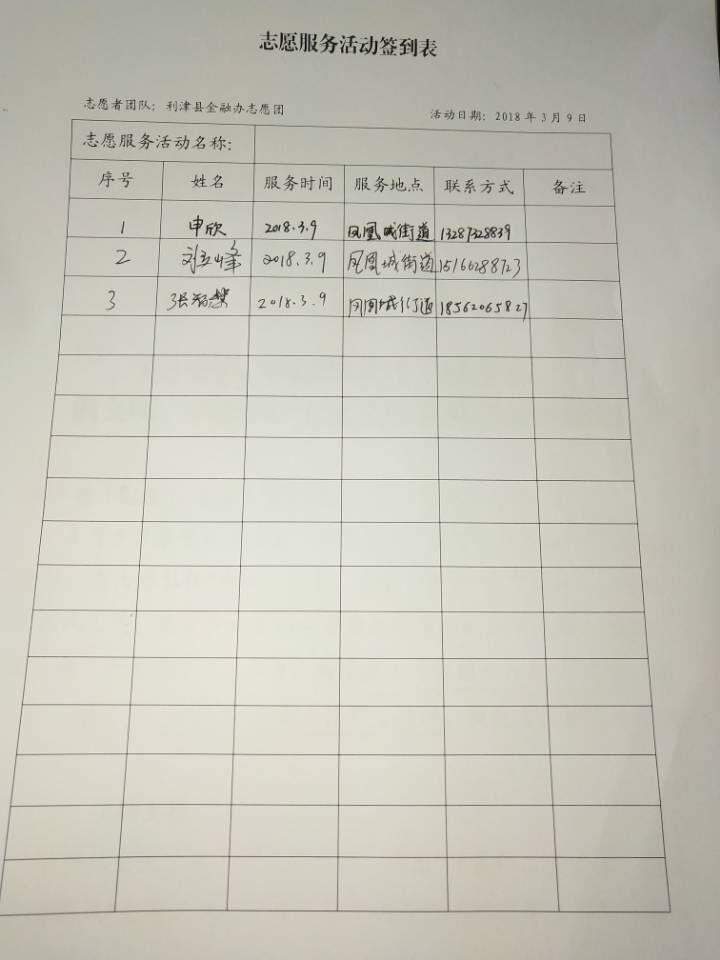 志愿服务活动签到表
志愿者团队：利津县金融办志愿团 活动日期：2018年3月9日
志愿服务活动名称：
序号 姓名 服务时间 服务地点 联系方式 备注
1 申欣 2018.3.9 凤凰城街道 13287328839
2 刘立峰 2018.3.9 凤凰城街道 15166288723
3 张 2018.3.9 凤凰城街道 18562065827